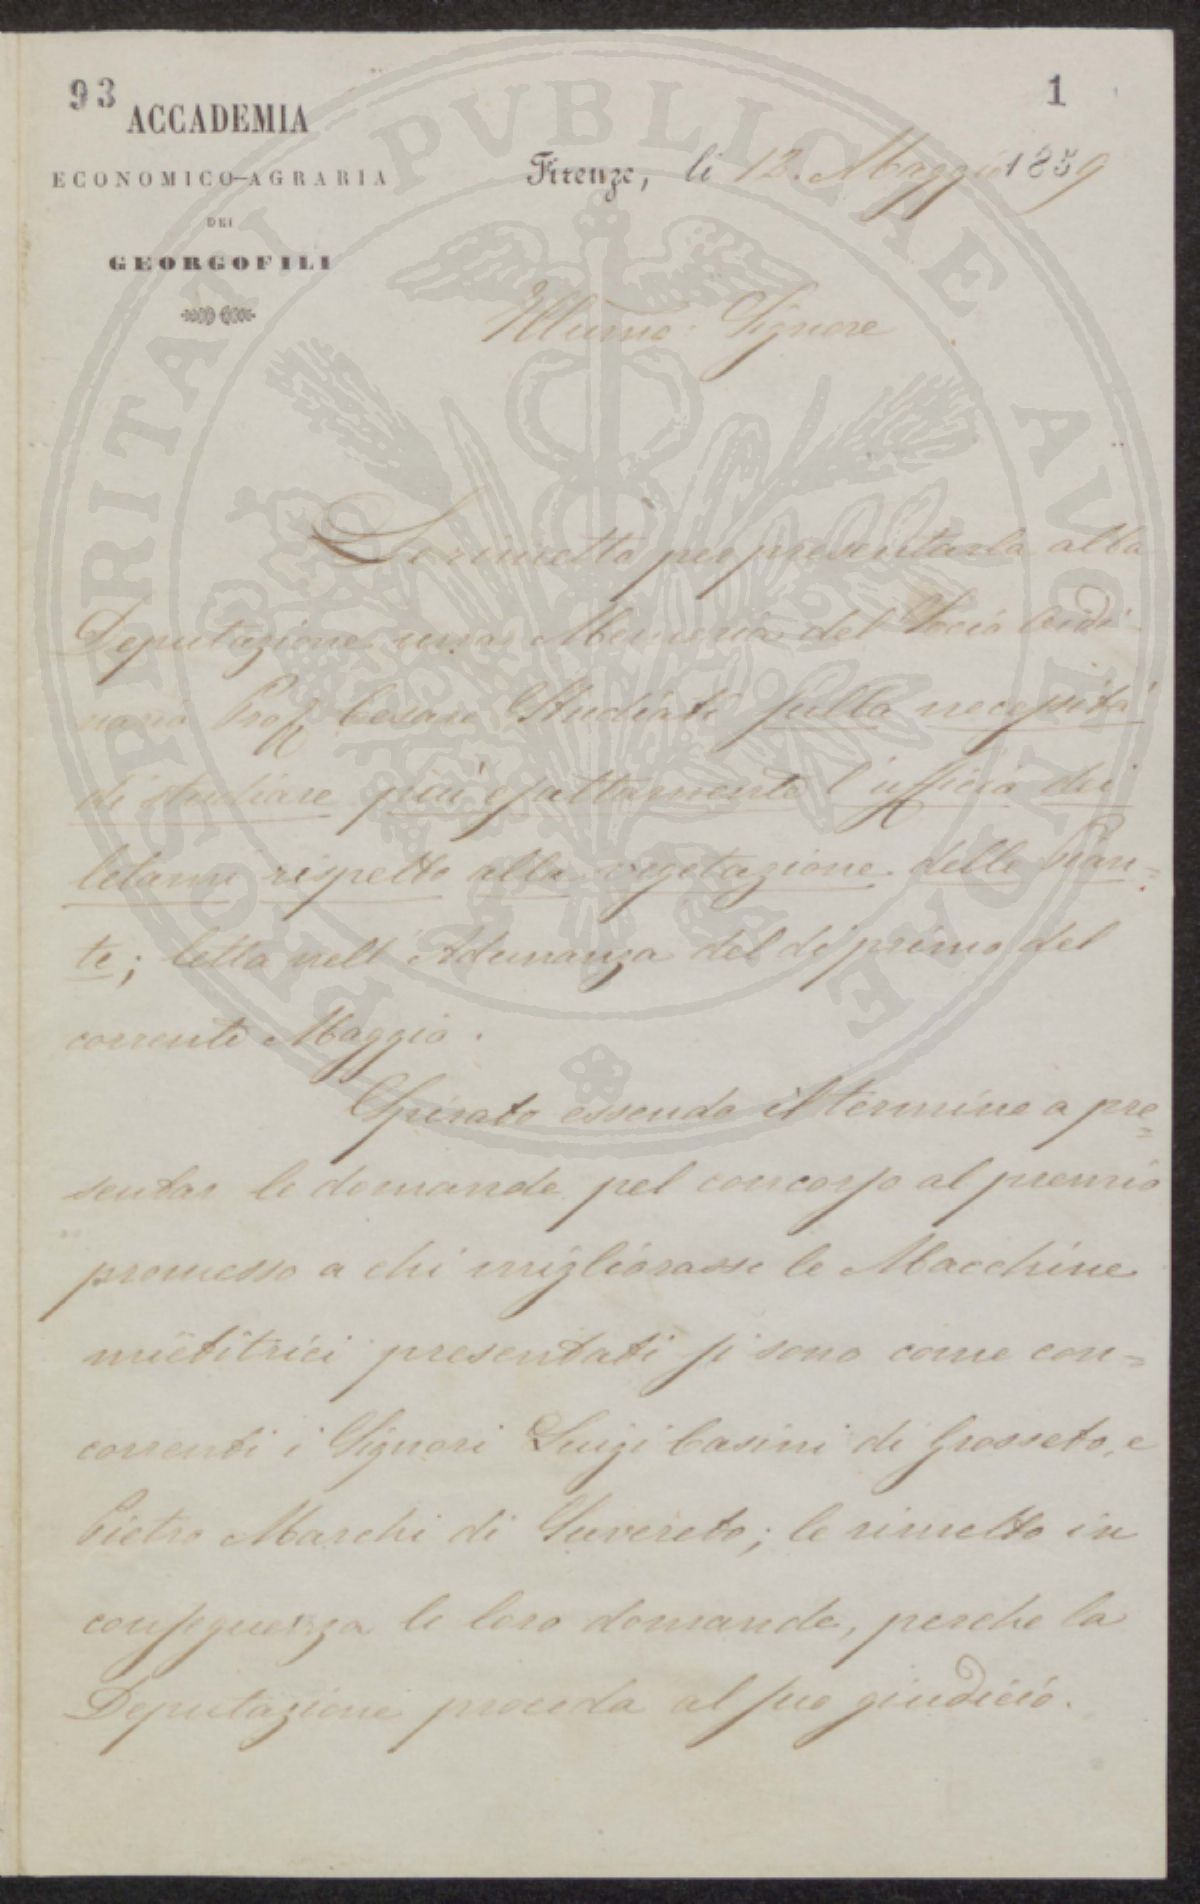 93
1
ACCADEMIA
ECONOMICO-AGRARIA
DEI
GEORGOFILI
Firenze, li 12. Maggio 1859
Illumo: Signore
Le rimetto per presentarla alla
Deputazione una Memoria del Socio Ordi-
nario Prof. Cesare Studiati sulla necessità
di studiare più esattamente l'ufficio dei
letami rispetto alla vegetazione delle pian=
te; letta nell'Adunanza del dì primo del
corrente Maggio.
Spirato essendo il termine a pre=
sentar le domande pel concorso al premio
promesso a chi migliorasse le Macchine
mietitrici presentati si sono come con=
correnti i Signori Luigi Casini di Grosseto, e
Pietro Marchi di Suvereto; le rimetto in
conseguenza le loro domande, perche la
Deputazione proceda al suo giudicio.
PROSPERITATI PVBLICAE AVGENDAE